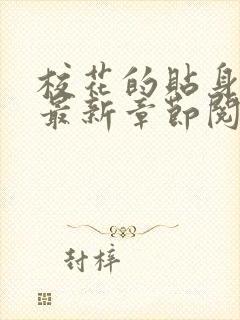 校花的贴身
最新章节阅
封梓